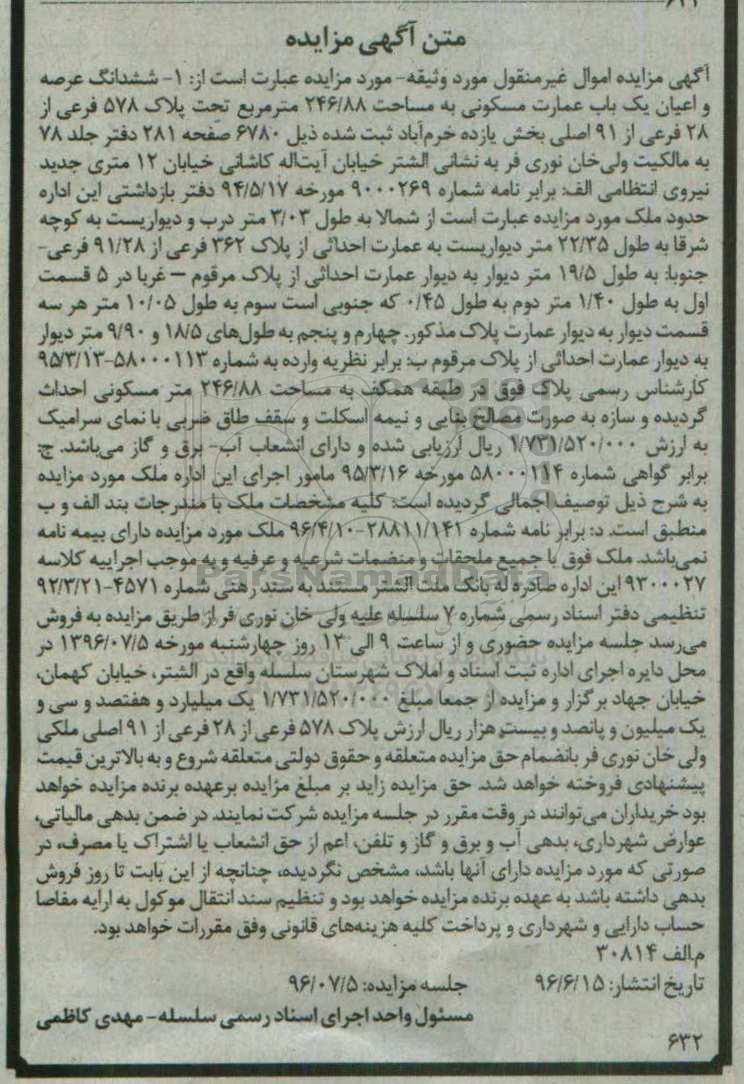 ۶۲۲
متن آگهی مزایده
آگهی مزایده اموال غیرمنقول مورد وثیقه- مورد مزایده عبارت است از: ۱- ششدانگ عرصه
و اعیان یک باب عمارت مسکونی به مساحت ۲۴۶/۸۸ مترمربع تحت پلاک ۵۷۸ فرعی از
۲۸ فرعی از ۹۱ اصلی بخش یازده خرم‌آباد ثبت شده ذیل ۶۷۸۰ صفحه ۲۸۱ دفتر جلد ۷۸
به مالکیت ولی‌خان نوری فر به نشانی الشتر خیابان آیت‌اله کاشانی خیابان ۱۲ متری جدید
نیروی انتظامی الف: برابر نامه شماره ۹۰۰۰۲۶۹ مورخه ۹۴/۵/۱۷ دفتر بازداشتی این اداره
حدود ملک مورد مزایده عبارت است از شمالا به طول ۳/۰۳ متر درب و دیواریست به کوچه
شرقا به طول ۲۲/۳۵ متر دیواریست به عمارت احداثی از پلاک ۳۶۲ فرعی از ۹۱/۲۸ فرعی-
جنوبا: به طول ۱۹/۵ متر دیوار به دیوار عمارت احداثی از پلاک مرقوم – غربا در ۵ قسمت
اول به طول ۱/۴۰ متر دوم به طول ۰/۴۵ که جنوبی است سوم به طول ۱۰/۰۵ متر هر سه
قسمت دیوار به دیوار عمارت پلاک مذکور. چهارم و پنجم به طول‌های ۱۸/۵ و ۹/۹۰ متر دیوار
به دیوار عمارت احداثی از پلاک مرقوم ب: برابر نظریه وارده به شماره ۵۸۰۰۰۱۱۳-۹۵/۳/۱۳
کارشناس رسمی پلاک فوق در طبقه همکف به مساحت ۲۴۶/۸۸ متر مسکونی احداث
گردیده و سازه به صورت مصالح بنایی و نیمه اسکلت و سقف طاق ضربی با نمای سرامیک
به ارزش ۱/۷۳۱/۵۲۰/۰۰۰ ریال ارزیابی شده و دارای انشعاب آب- برق و گاز می‌باشد. ج:
برابر گواهی شماره ۵۸۰۰۰۱۱۴ مورخه ۹۵/۳/۱۶ مامور اجرای این اداره ملک مورد مزایده
به شرح ذیل توصیف اجمالی گردیده است: کلیه مشخصات ملک با مندرجات بند الف و ب
منطبق است. د: برابر نامه شماره ۲۸۸۱۱/۱۴۱-۹۶/۴/۱۰ ملک مورد مزایده دارای بیمه نامه
نمی‌باشد. ملک فوق با جمیع ملحقات و منضمات شرعیه و عرفیه و به موجب اجراییه کلاسه
۹۳۰۰۰۲۷ این اداره صادره له بانک ملت الشتر مستند به سند رهنی شماره ۴۵۷۱-۹۲/۳/۲۱
تنظیمی دفتر اسناد رسمی شماره ۷ سلسله علیه ولی خان نوری فر از طریق مزایده به فروش
می‌رسد جلسه مزایده حضوری و از ساعت ۹ الی ۱۲ روز چهارشنبه مورخه ۱۳۹۶/۰۷/۵ در
محل دایره اجرای اداره ثبت اسناد و املاک شهرستان سلسله واقع در الشتر، خیابان کهمان،
خیابان جهاد برگزار و مزایده از جمعا مبلغ ۱/۷۳۱/۵۲۰/۰۰۰ یک میلیارد و هفتصد و سی و
یک میلیون و پانصد و بیست هزار ریال ارزش پلاک ۵۷۸ فرعی از ۲۸ فرعی از ۹۱ اصلی ملکی
ولی خان نوری فر بانضمام حق مزایده متعلقه و حقوق دولتی متعلقه شروع و به بالاترین قیمت
پیشنهادی فروخته خواهد شد. حق مزایده زاید بر مبلغ مزایده برعهده برنده مزایده خواهد
بود خریداران می‌توانند در وقت مقرر در جلسه مزایده شرکت نمایند. در ضمن بدهی مالیاتی،
عوارض شهرداری، بدهی آب و برق و گاز و تلفن، اعم از حق انشعاب یا اشتراک یا مصرف، در
صورتی که مورد مزایده دارای آنها باشد، مشخص نگردیده، چنانچه از این بابت تا روز فروش
بدهی داشته باشد به عهده برنده مزایده خواهد بود و تنظیم سند انتقال موکول به ارایه مفاصا
حساب دارایی و شهرداری و پرداخت کلیه هزینه‌های قانونی وفق مقررات خواهد بود.
م‌الف ۳۰۸۱۴
تاریخ انتشار: ۹۶/۶/۱۵ جلسه مزایده: ۹۶/۰۷/۵
مسئول واحد اجرای اسناد رسمی سلسله- مهدی کاظمی
۶۳۲
ParsNamadData